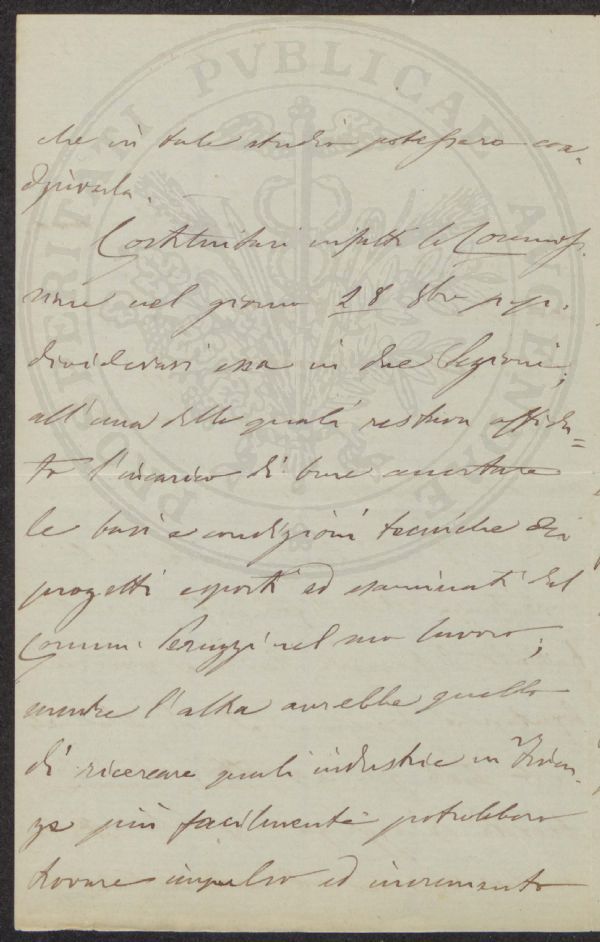 che in tale studio potessero coa-
diuvarla.
Costituitasi infatti la Commis-
sione nel giorno 28 8bre p.p.
dividevasi essa in due Sezioni;
all'una delle quali restava affida=
to l'incarico di bene accertare
le basi e condizioni tecniche dei
progetti esposti ed esaminati dal
Comm. Peruzzi nel suo lavoro;
mentre l'altra avrebbe quello
di ricercare quali industrie in Firen-
ze più facilmente potrebbero
trovare impulso ed incremento
PROSPERITATI PVBLICAE AVGENDAE